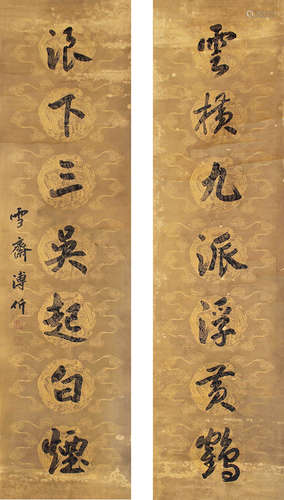 雲橫九派浮黃鶴
浪下三吳起白煙
雪齋溥伒